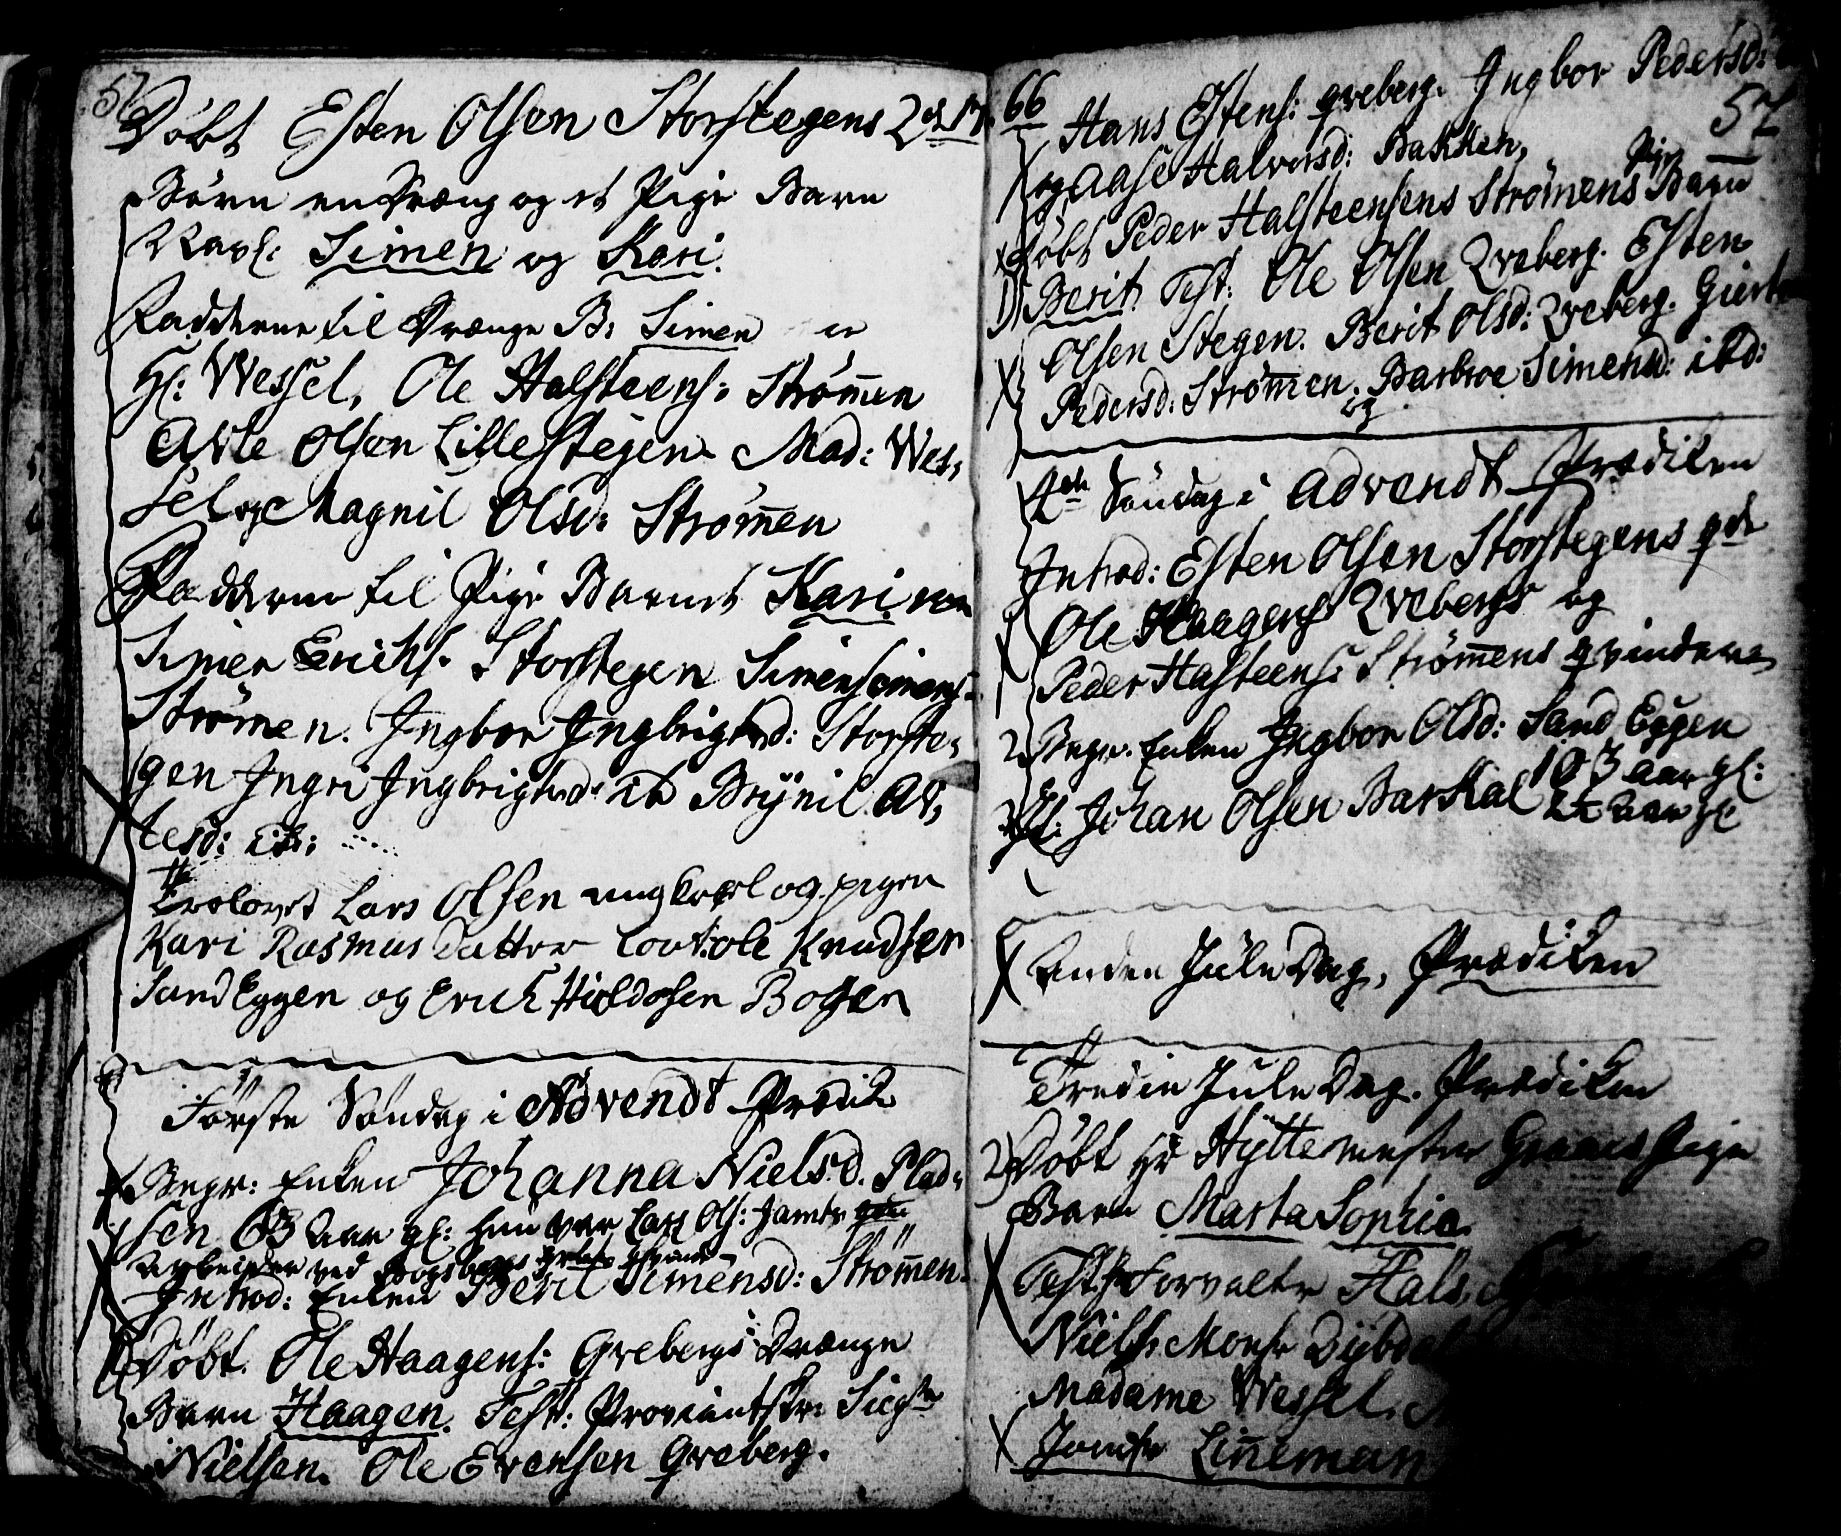 57
Döbt Esten Olsen Storstegens 2de
Börn en Dræng og et Pige Barn
Navl: Simen og Kari.
Fadderne til Drænge B: Simen er
Hl: Wessel, Ole Halsteens: Strömen
Atle Olsen Lillestegen Mad: Wes,
sel og Magnil Olsd: Strömen
Fadderne til Pige Barnet Kari er
Simen Erichs: Storstegen Simen Simens:
Strömen. Ingbor Ingbrigtsd: Storste,
gen Ingri Ingbrigtsd: ib Brynil At,
lesd: ib:
Trolovet Lars Olsen ungkarl og pigen
Kari Rasmus Datter Cout: ole Knudsen
Sand Eggen og Erich Hioldosen Bogen
Förste Söndag i Advendt Prædik
Begr: Enken Johanna Nielsd. Plad,
sen 63 Aar gl: hun var Lars Ols: Jamts
Arbeider ved
Introd: Enken Berit Simensd: Strömen.
Döbt. Ole Haagens: Qvebergs Drænge
Barn Haagen. Test: Proviantskr: Sieg
Nielsen. Ole Evensen Qveberg.
66
57
Hans Estens: qveberg. Ingbor Pedersd:
og Aase Halvorsd: Bakken,
Döbt Peder Halsteensens Strömens Pige Barn
Berit Test: Ole Olsen Qveberg. Esten
Olsen Stegen. Berit Olsd: Qveberg. Giert
Pedersd: Strömen. og Barbroe Simensd: ibd:
4de Söndag i Advendt Prædiken
Introd: Esten Olsen Storstegens
Ole Haagens Qvebergs og
Peder Halsteens: Strömens qvinder
2 Begr. Enken Ingbor Olsd: Sand Eggen
103 aar gl:
Johan Olsen Barkal 2½ Aar gl
Anden Jule Dag, Prædiken
Tredie Jule Dag. Prædiken
2 Döbt Hr Hyttemester Graaes Pige
Barn Marta Sophia.
Test: Hr Forvalter Hals,
Niels: Monsr Dybdal
Madame Wessel,
Jomfr Linneman